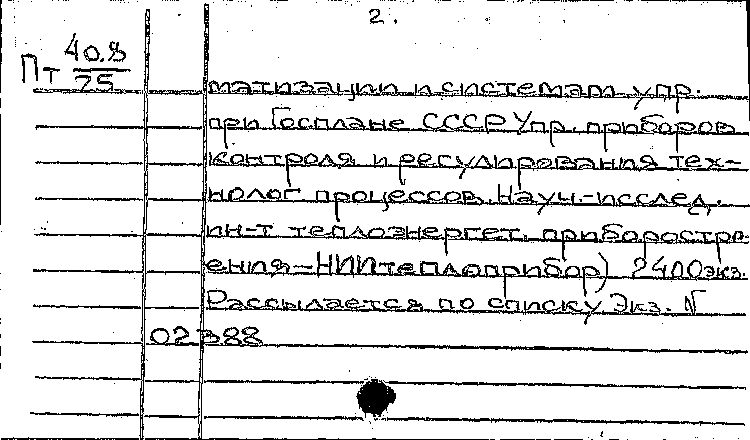 2.
Пт 40.8
25
матизации и системам упр.
при Госплане СССР Упр. приборов
контроля и регулирования тех-
нолог. процессов. Науч-исслед.
ин-т теплоэнергет. приборостро
ения-НИИтеплоприбор) 2400экз.
Рассылается по списку Экз. N
02388